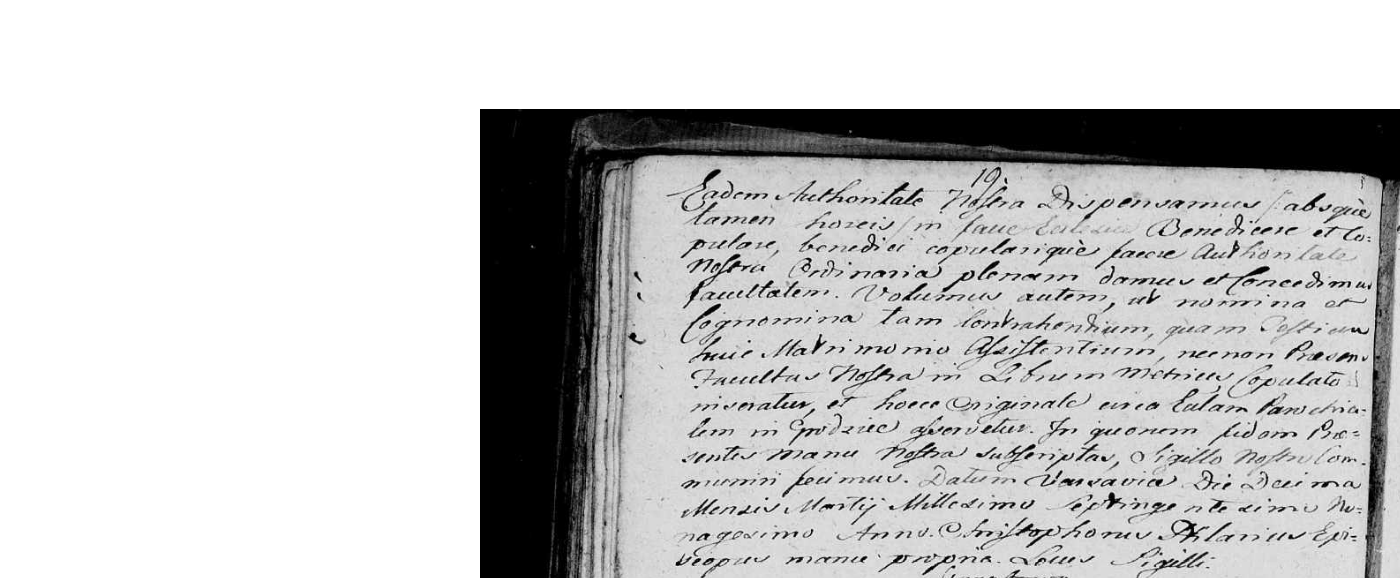 19.
Eadem Authoritate Nostra Dispensamus /: absque
tamen horeis / in facie Ecclesiae Benedicere et Co=
pulare, benedici copularique facere Authoritate
Nostra Ordinaria plenam damus et Concedimus
facultatem. Volumus autem, ut nomina et
Cognomina tam Contrahentium, quam Testium
huic Matrimonio Assistentium, necnon Præsens
Facultas Nostra in Librum Metrices Copulato
inseratur, et hocce Originale circa Eclam Parochia=
lem in asservetur. In quorum fidem Præ=
sentes manu Nostra subscriptas, Sigillo Nostro Com=
muniri fecimus. Datum Varsaviæ Die Decima
Mensis Martij Millesimo Septingentesimo No=
nagesimo Anno. Christophorus Hilarius Epi=
scopus manu propria. Locus Sigilli.